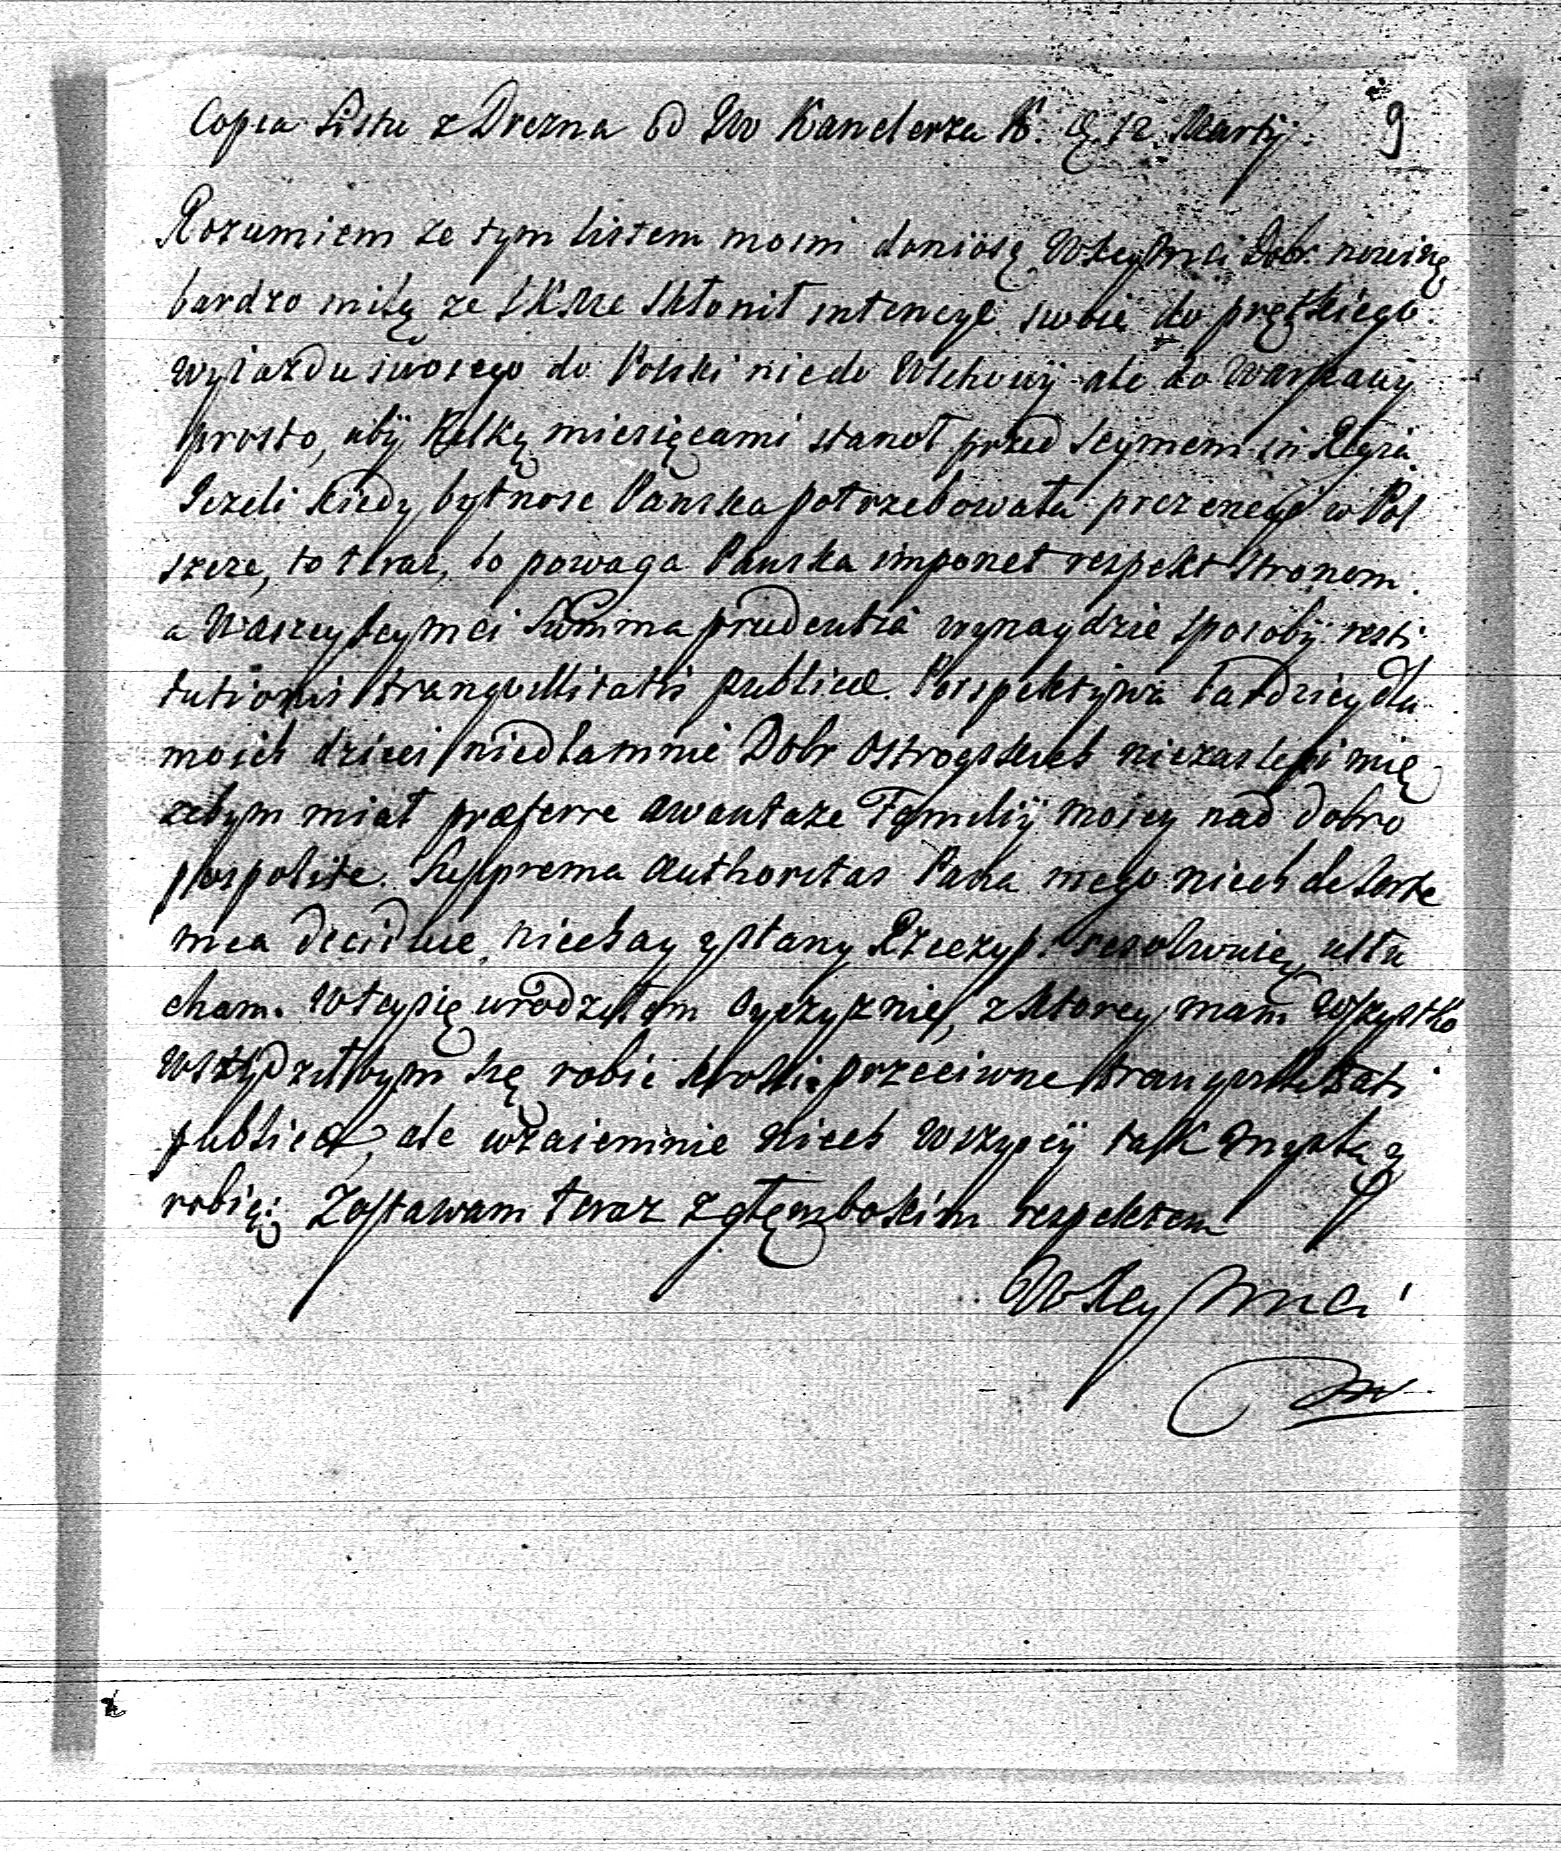 Copia Listu z Drezna od JW Kanclerza K. d. 12 Martij. 9
Rozumiem ze tym listem moim doniosę WKeyMci Dobr. nowinę
bardzo miłą ze JKMc skłonił intencye swoię do prętkiego
wyiazdu swoiego do Polski nie do Wschowy ale do Warszawy
prosto, aby kilką miesięcami stanoł przed Seymem in Regia.
Jezeli kiedy bytnosc Panska potrzebowała prezencyi w Pol
szcze, to teraz, bo powaga Panska imponet respekt stronom.
a Waszey Xcymci summa prudentia wynaydzie sposoby resti
tutionis tranquillitatis publicæ. Perspektywa bardziey dla
moich dzieci niedlamnie Dobr Ostrogskich niezaslepi mię
zebym miał præferre awantaze Familij moiey nad dobro
pospolite. Supprema Authoritas Pana mego niech de sorte
mea deciduie, niechay y stany Rzeczyp. resolwuię, usłu
cham. W tey się urodziłem Oyczyznie, z ktorey mam wszystko
wstydziłbym się robic kroki przeciwne tranquillitati
publicæ, ale wzaiemnie niech wszyscy tak myslą y
robią: Zostawam teraz z głęmbokim respektem
WXcy Mci